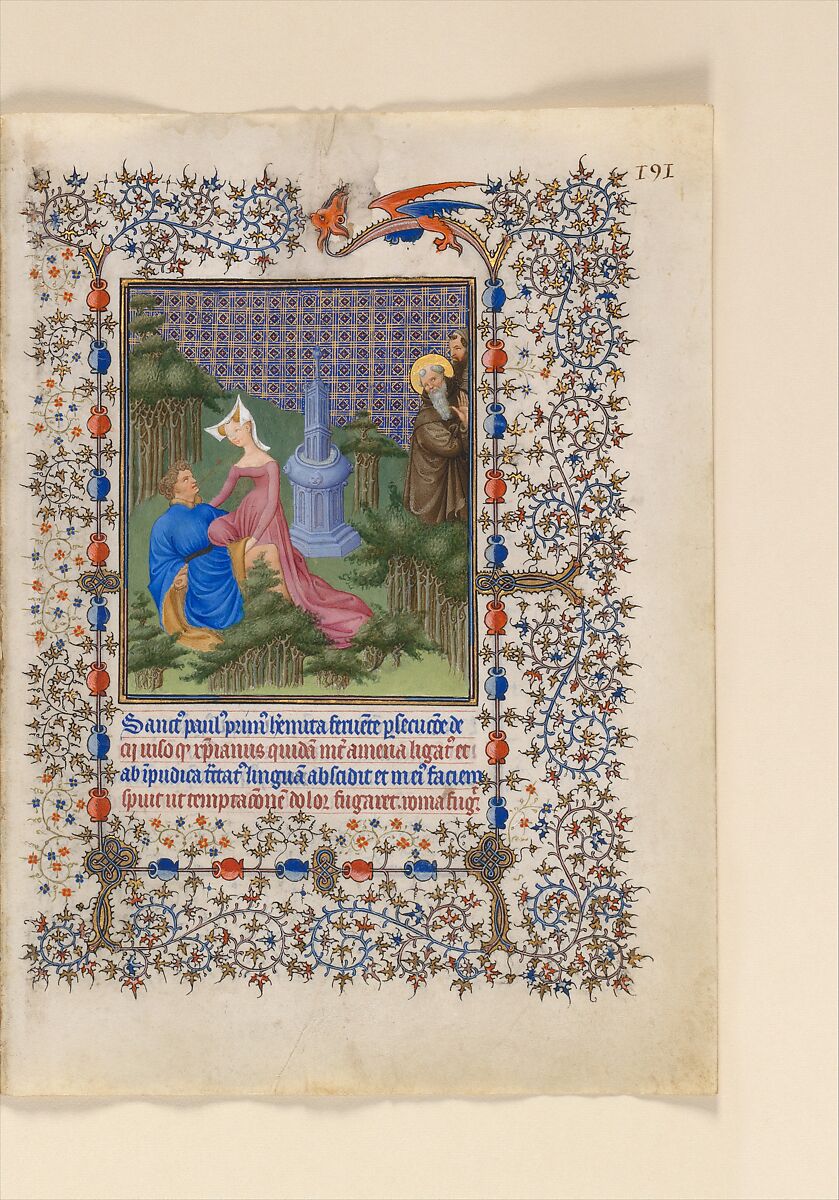 191
Sanct9 paul9 prim9 h'emita feruēte ꝑsecucōe de
cij uiso ꝙ xp̄ianus quidā int' amena ligat9 et
ab īpudica t̄ctat9 linguā abscidit et in ei9 faciem
spuit ut temptacōnē dolor fugaret. roma fug'.